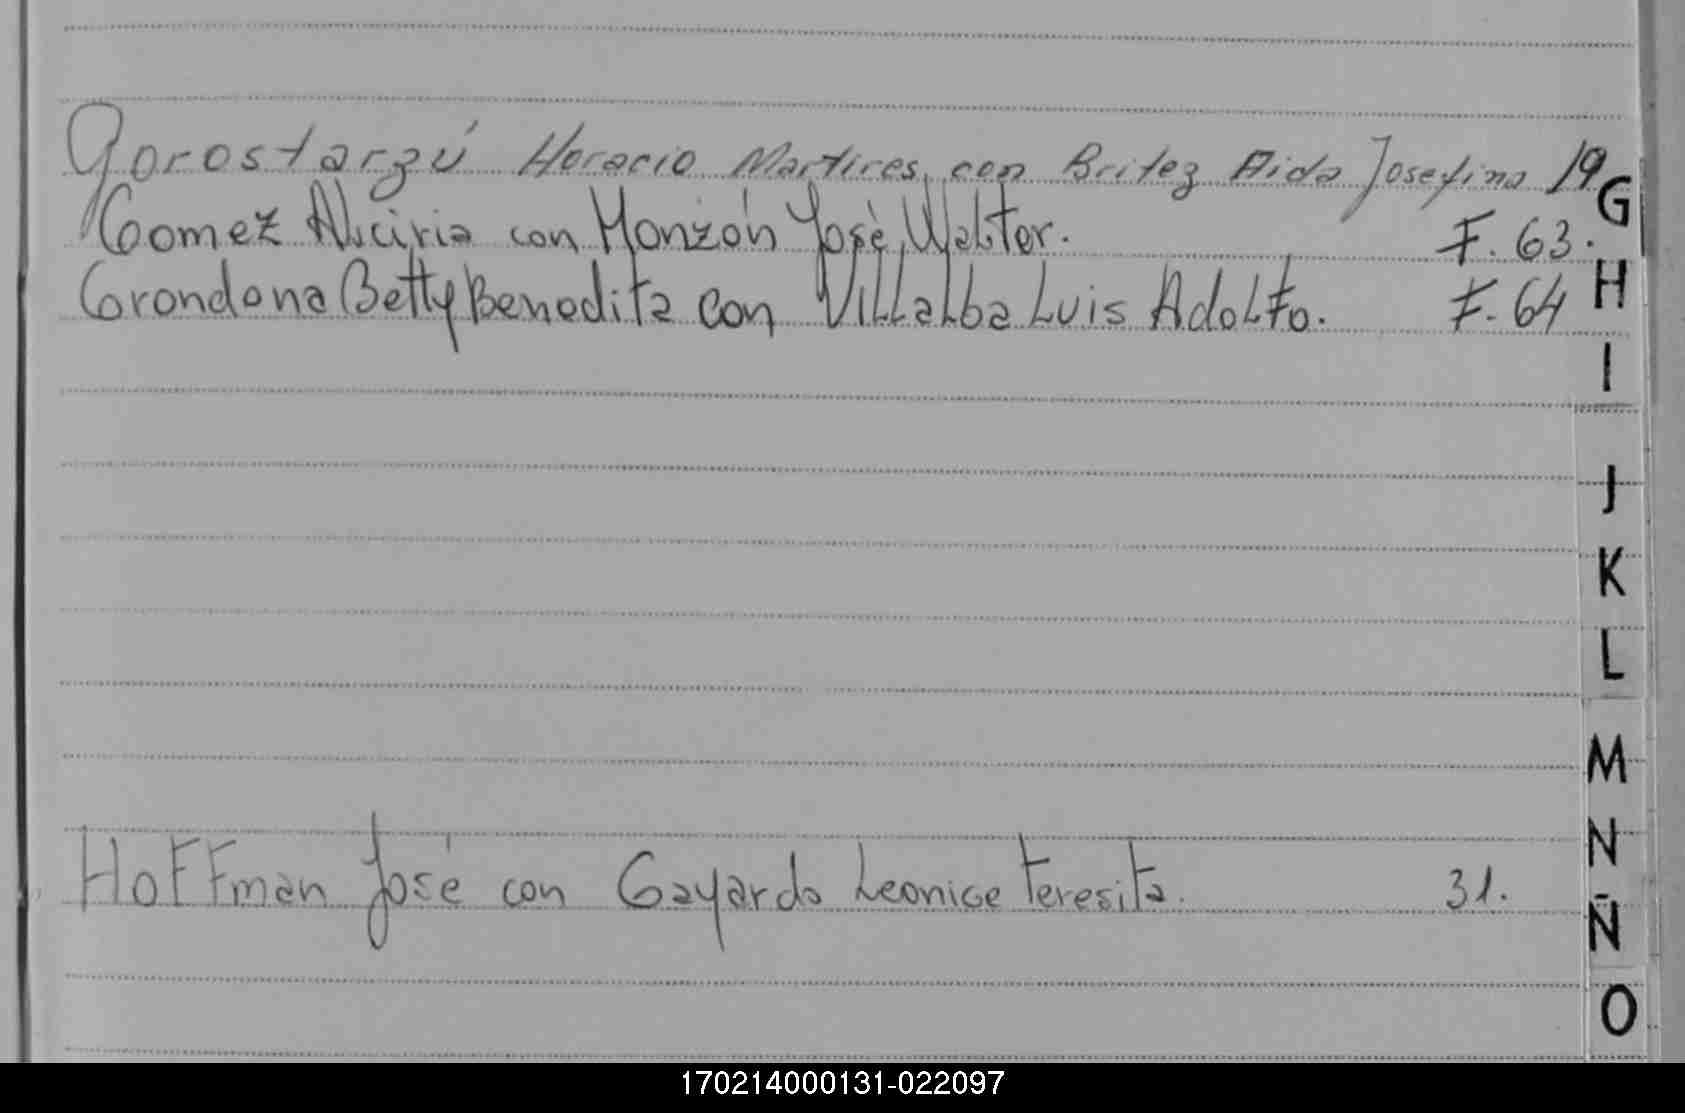 Gorostarzú Horacio Martires con Britez Aida Josefina 19
Gomez Alviciria con Monzón José Walter. F. 63.
Grondona Betty Benedita con Villalba Luis Adolfo. F. 64
Hoffman José con Gayardo Leonice Teresita. 31.
G
H
I
J
K
L
M
N
Ñ
O
170214000131-022097